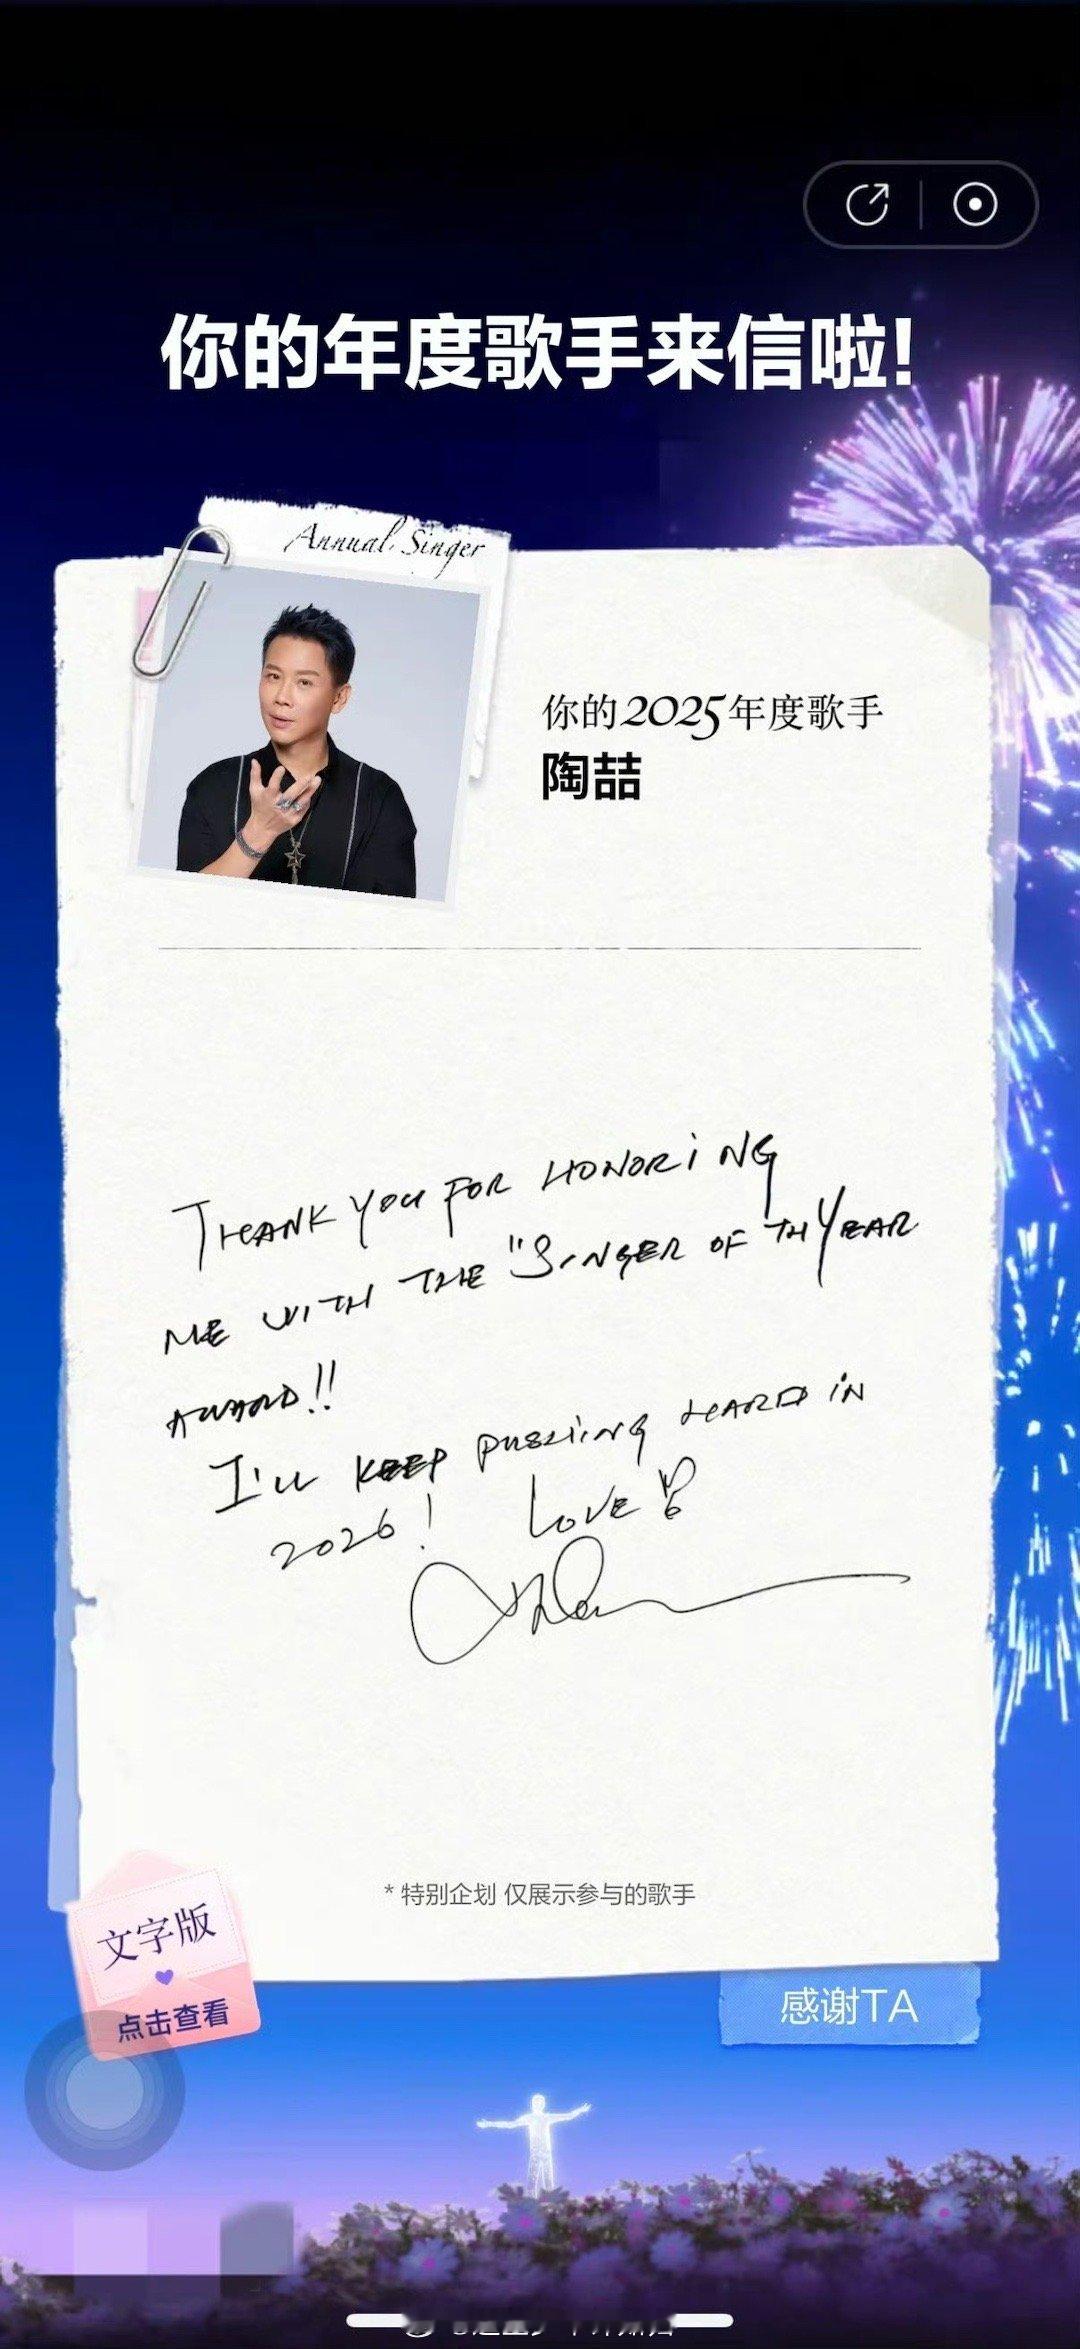 你的年度歌手来信啦!
Annual Singer
你的2025年度歌手
陶喆
THANK YOU FOR HONORING
ME WITH THE "SINGER OF TH YEAR
AWARD!!
I'LL KEEP PUSHING HARD IN
2026! LOVE
*特别企划 仅展示参与的歌手
文字版
点击查看
感谢TA